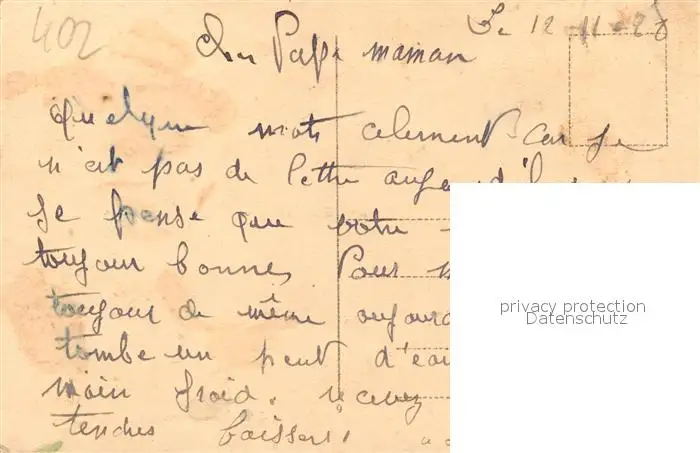 402
Le 12-11-28
Cher Papa maman
Quelque mots celement car je
n'ait pas de lettre aujourd'hu
je pense que votre
toujour bonne, Pour
toujour de même aujourd
tombe un peut d'eau
moin froid. recevez
tendres baissers
privacy protection
Datenschutz